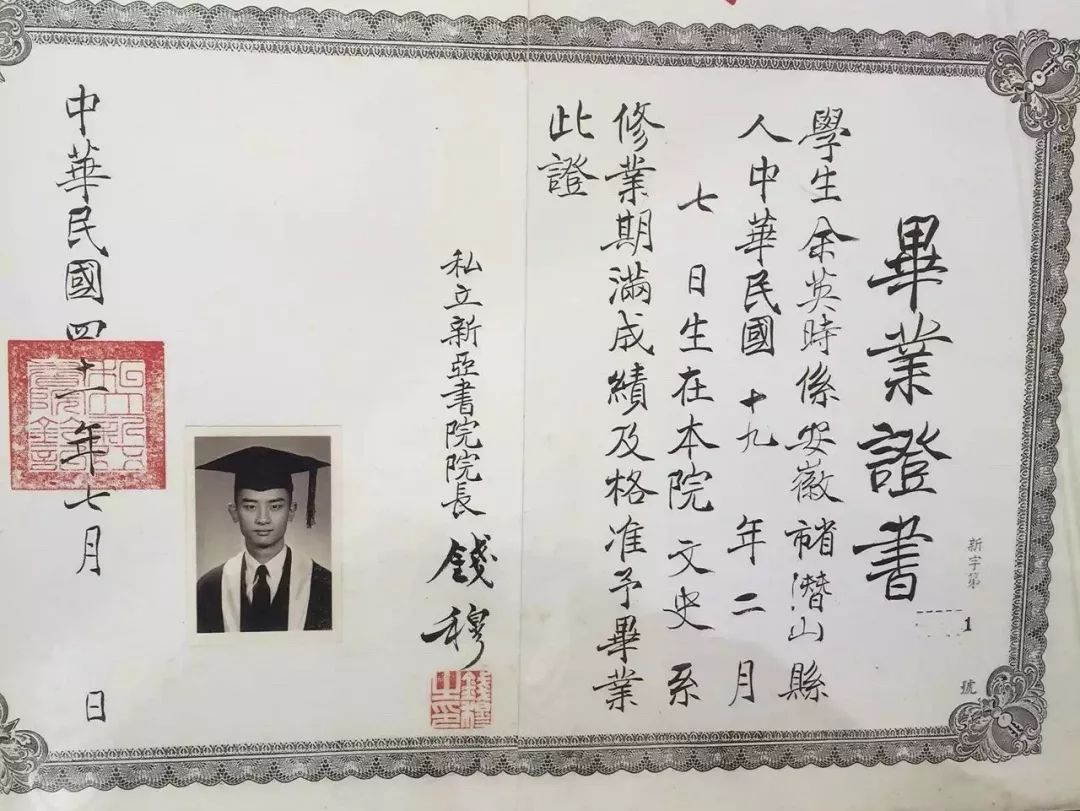 新字第1號
畢業證書
學生余英時係安徽省市潛山縣
人中華民國十九年二月
七日生在本院文史系
修業期滿成績及格准予畢業
此證
私立新亞書院院長錢穆
錢穆之印
中華民國四十一年七月 日